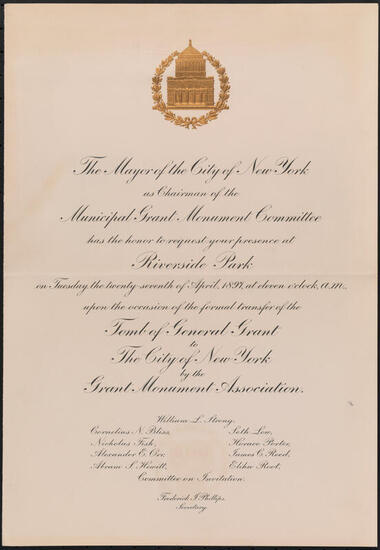 The Mayor of the City of New York
as Chairman of the
Municipal Grant Monument Committee
has the honor to request your presence at
Riverside Park
on Tuesday, the twenty-seventh of April, 1897, at eleven o'clock, a.m.,
upon the occasion of the formal transfer of the
Tomb of General Grant
to
The City of New York
by the
Grant Monument Association.
William L. Strong,
Cornelius N. Bliss, Seth Low,
Nicholas Fish, Horace Porter,
Alexander E. Orr, James C. Reed,
Abram S. Hewitt, Elihu Root,
Committee on Invitation.
Frederick J. Phillips,
Secretary